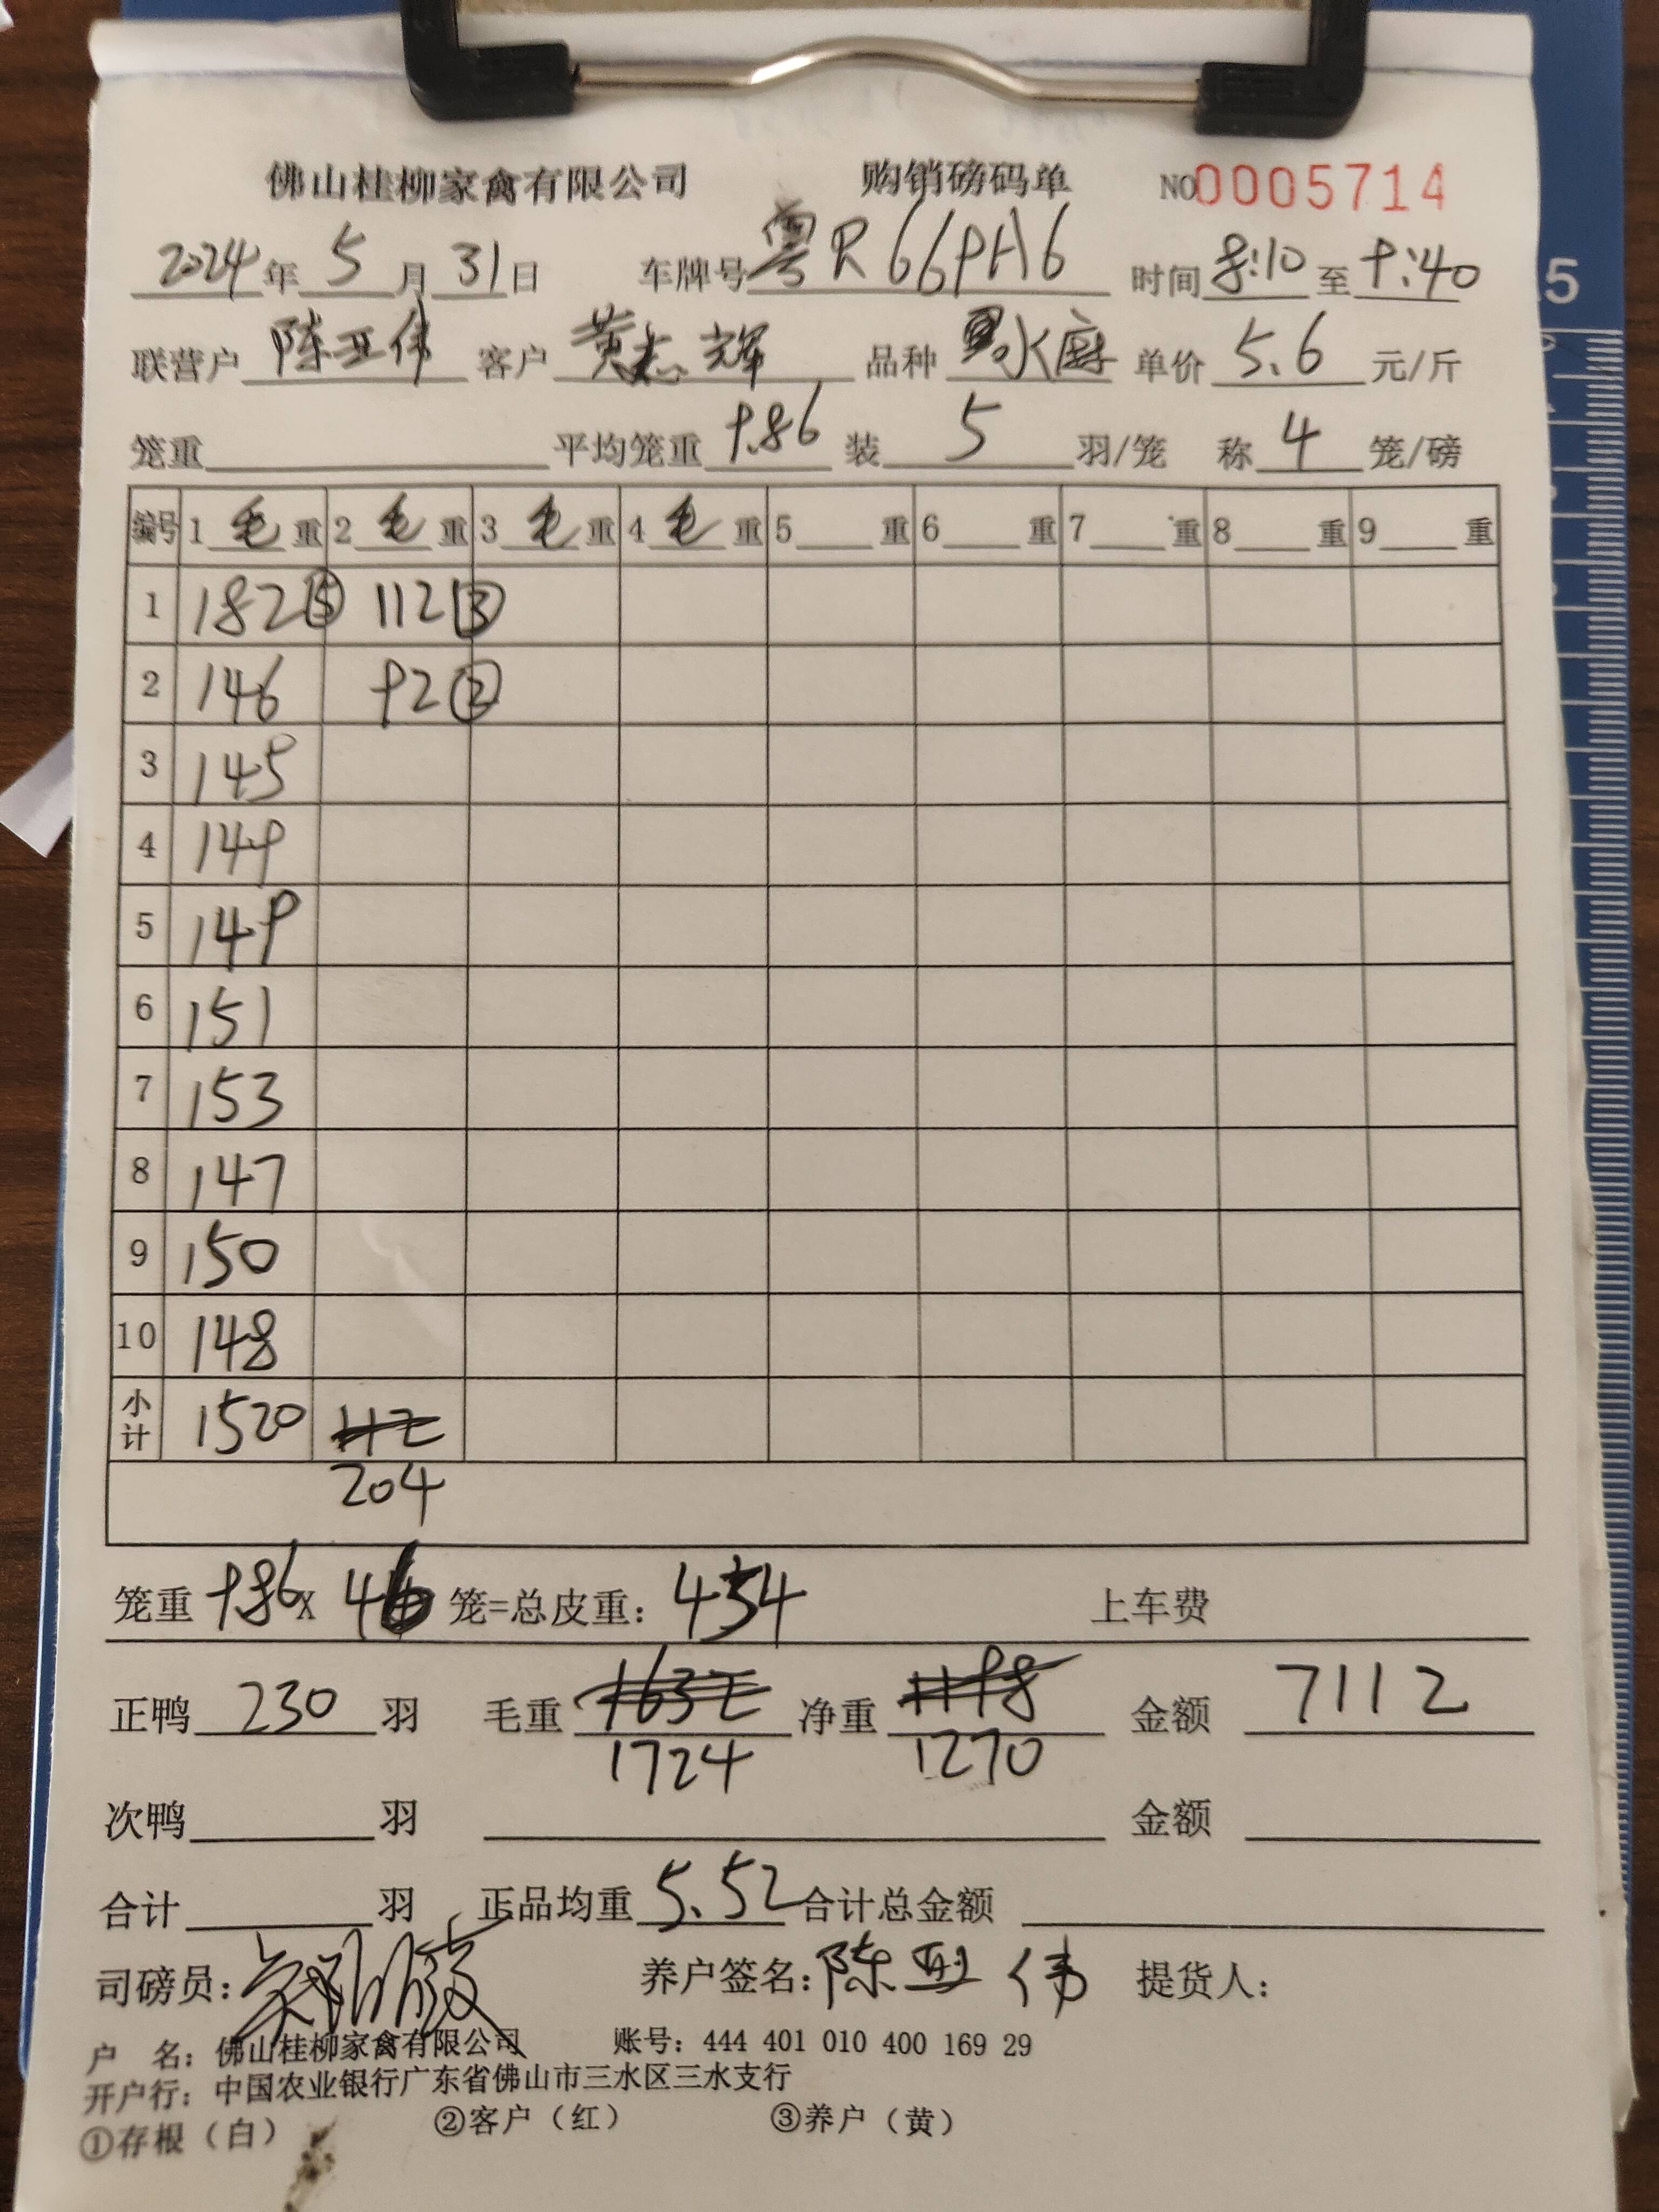 佛山桂柳家禽有限公司 购销磅码单 NO0005714
2024年 5 月 31 日 车牌号 粤R669A6 时间 8:10 至 9:40
联营户 陈亚伟 客户 黄志辉 品种 单价 5.6 元/斤
笼重 平均笼重 9.86 装 5 羽/笼 称 4 笼/磅
编号 1 毛 重 2 毛 重 3 毛 重 4 毛 重 5 重 6 重 7 重 8 重 9 重
1 182⑤ 112③
2 146 92②
3 145
4 149
5 149
6 151
7 153
8 147
9 150
10 148
小计 1520 112
204
笼重 986 x 46 笼=总皮重: 454 上车费
正鸭 230 羽 毛重 1632 净重 1198 金额 7112
1724 1270
次鸭 羽 金额
合计 羽 正品均重 5.52 合计总金额
司磅员: 养户签名: 陈亚伟 提货人:
户 名: 佛山桂柳家禽有限公司 账号: 444 401 010 400 169 29
开户行: 中国农业银行广东省佛山市三水区三水支行
①存根（白） ②客户（红） ③养户（黄）